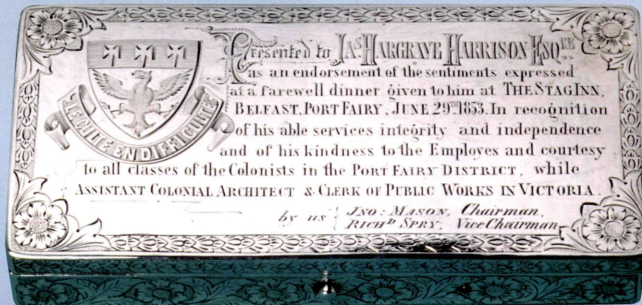 Presented to Jas. HARGRAVE HARRISON ESQRE
as an endorsement of the sentiments expressed
at a farewell dinner given to him at THE STAG INN,
BELFAST, PORT FAIRY, JUNE 29TH 1853. In recognition
of his able services integrity and independence
and of his kindness to the Employes and courtesy
to all classes of the Colonists in the PORT FAIRY DISTRICT, while
ASSISTANT COLONIAL ARCHITECT & CLERK OF PUBLIC WORKS IN VICTORIA.
by us JNO: MASON, Chairman.
RICHD SPRY, Vice Chairman